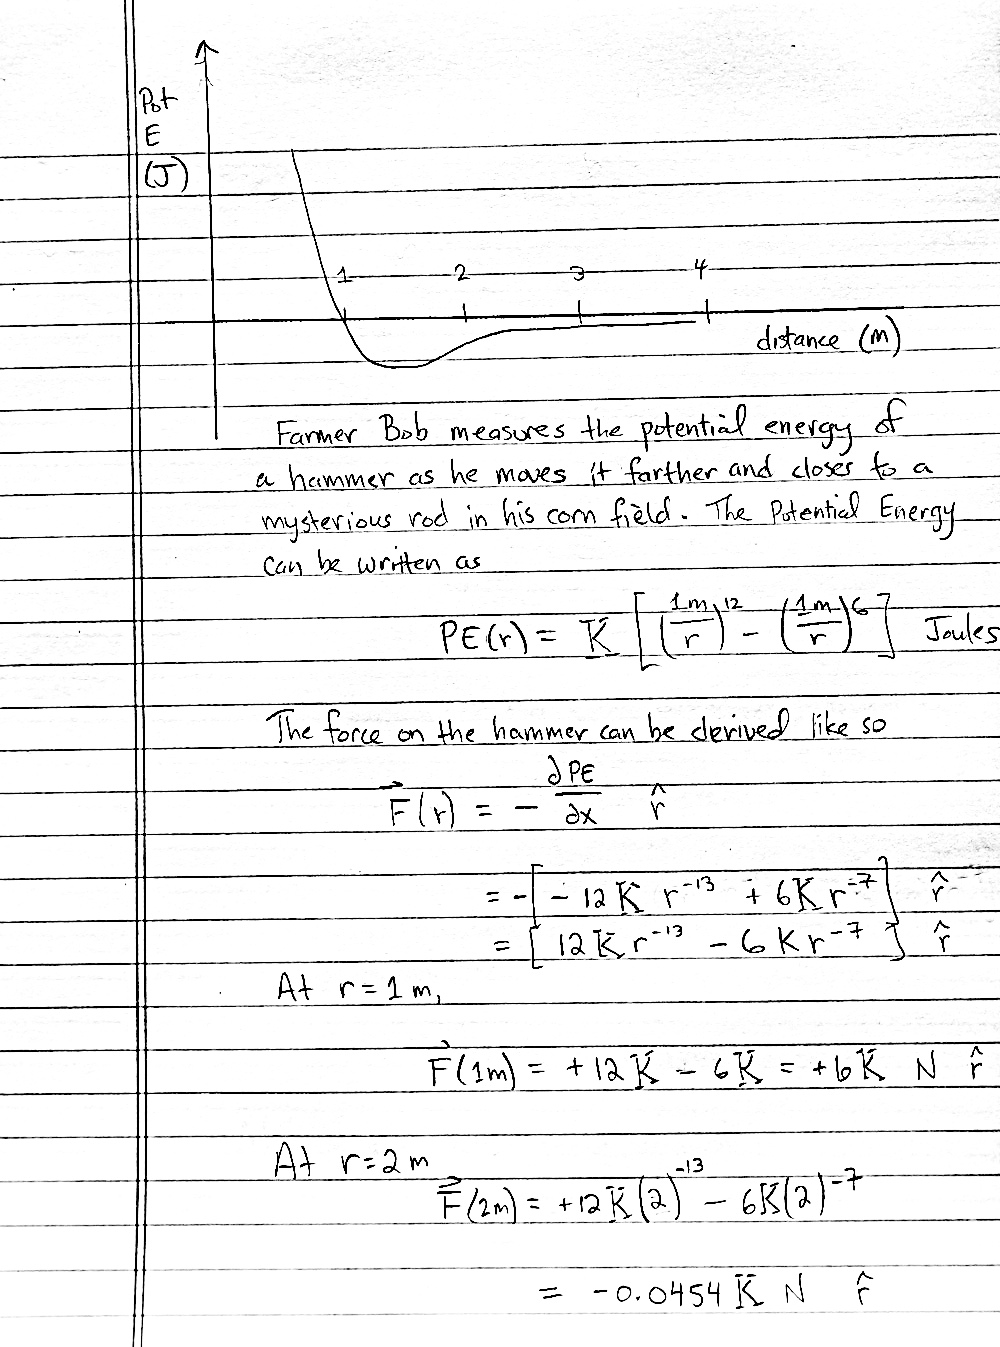 Pot
E
(J)
1 2 3 4
distance (m)
Farmer Bob measures the potential energy of
a hammer as he moves it farther and closes to a
mysterious rod in his corn field. The Potential Energy
can be written as
PE(r) = K [(1m/r)^12 - (1m/r)^6] Joules
The force on the hammer can be derived like so
F⃗(r) = - ∂PE/∂x r̂
= -[-12K r^-13 + 6K r^-7] r̂
= [12K r^-13 - 6K r^-7] r̂
At r = 1 m,
F⃗(1m) = +12K - 6K = +6K N r̂
At r=2 m
F⃗(2m) = +12K(2)^-13 - 6K(2)^-7
= -0.0454 K N r̂